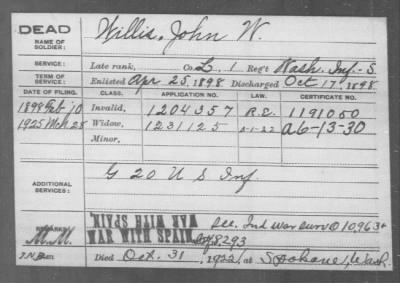 DEAD
NAME OF SOLDIER: Willis, John W.
SERVICE: Late rank, Co. L. 1 Reg't Wash. Inf. - S.
TERM OF SERVICE: Enlisted Apr 25, 1898 Discharged Oct 17, 1898.
DATE OF FILING. CLASS. APPLICATION NO. LAW. CERTIFICATE NO.
1899 Feb 10 Invalid, 1204357 R.E. 1191050
1925 Mch 28 Widow, 1231125 a6-13-30
Minor,
ADDITIONAL SERVICES: G 20 U S Inf.
WAR WITH SPAIN. See Ind War Surv O 10963
REMARKS: M.M. WAR WITH SPAIN 8293
Died Oct. 31, 1922, at Spokane, Wash.